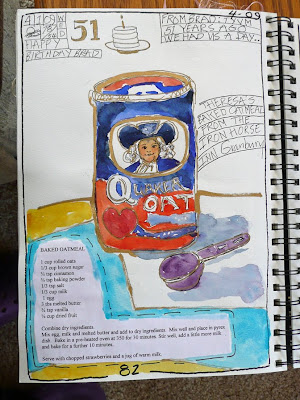 4-09
51
HAPPY
BIRTHDAY BRAD
FROM BRAD TO YVM
51 YEARS AGO
WE HAD US A DAY...
THERESA'S
BAKED OATMEAL
FROM THE
IRON HORSE
INN Granbury
QUAKER
OAT
BAKED OATMEAL
1 cup rolled oats
1/3 cup brown sugar
½ tsp cinnamon
¾ tsp baking powder
1/3 tsp salt
1/3 cup milk
1 egg
2 tbs melted butter
¾ tsp vanilla
¼ cup dried fruit
Combine dry ingredients.
Mix egg, milk and melted butter and add to dry ingredients. Mix well and place in pyrex
dish. Bake in a pre-heated oven at 350 for 30 minutes. Stir well, add a little more milk
and bake for a further 10 minutes.
Serve with chopped strawberries and a jug of warm milk.
82